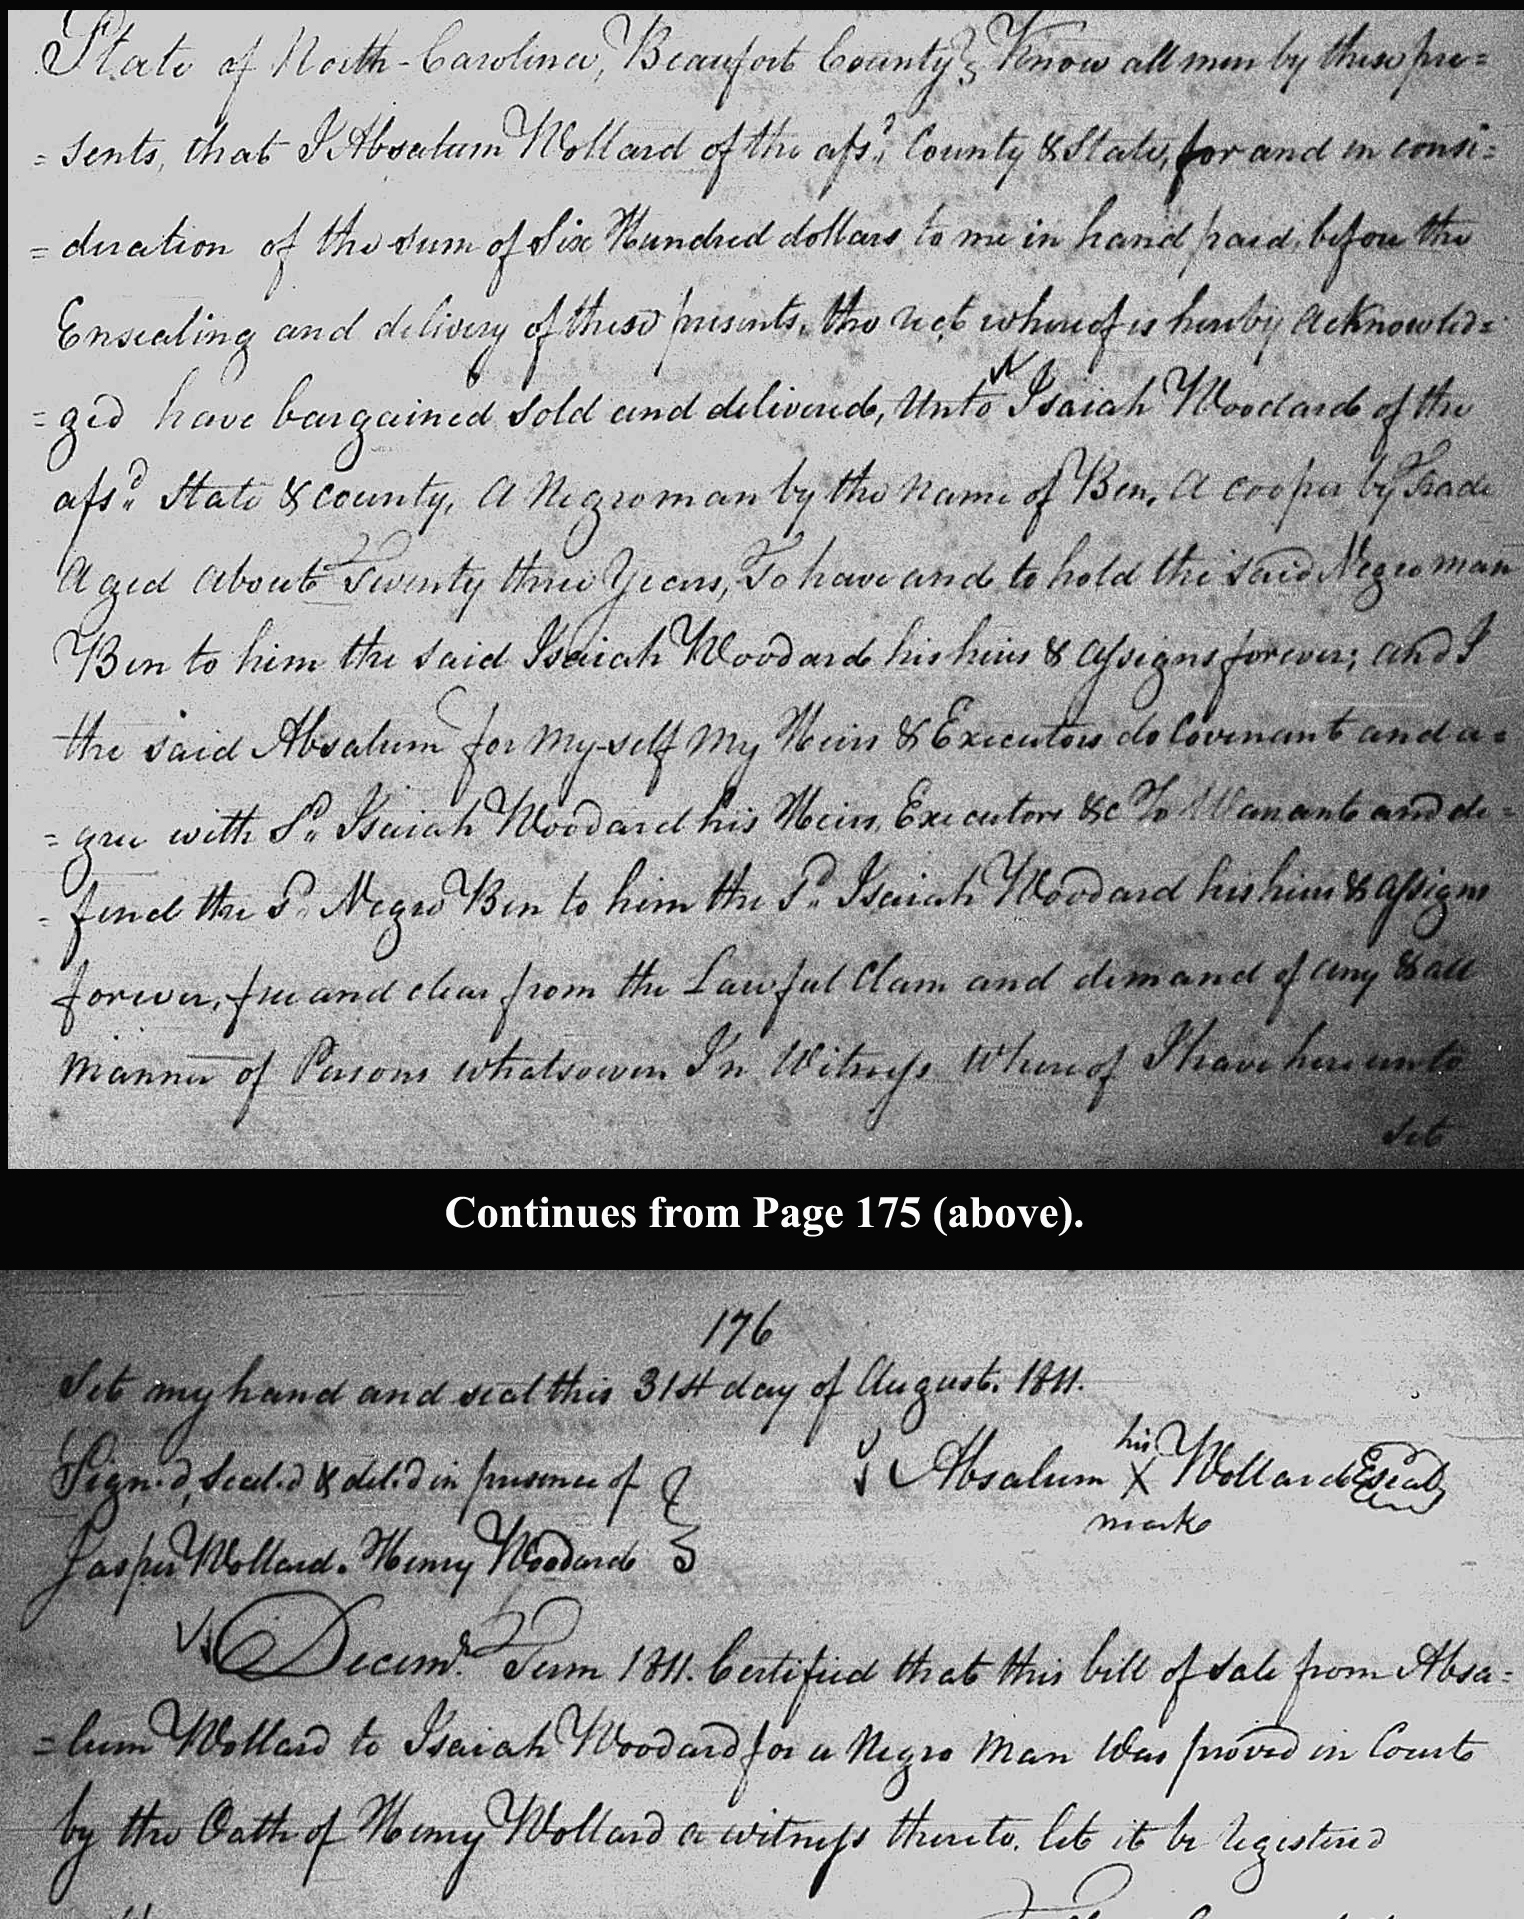 State of North-Carolina, Beaufort County} Know all men by these pre=
=sents, that I Absalum Wollard of the afsd., County & State, for and in consi=
=deration of the sum of Six Hundred dollars to me in hand paid, before the
Ensealing and delivery of these presents, the rect whereof is hereby acknowled=
=ged have bargained sold and delivered, Unto Isaiah Woodard of the
afsd. State & County, A Negro man by the name of Ben, A cooper by Trade
Aged about Twenty three Years, To have and to hold the said Negro man
Ben to him the said Isaiah Woodard his heirs & assigns forever; and I
the said Absalum for my-self my Heirs & Executors do Covenant and a=
=gree with Sd. Isaiah Woodard his Heirs, Executors &c To Warrant and de=
=fend the Sd. Negro Ben to him the Sd. Isaiah Woodard his heirs & assigns
forever, free and clear from the Lawful Clam and demand of any & all
manner of Persons whatsoever In Witness Whereof I have hereunto
Set
Continues from Page 175 (above).
176
Set my hand and seal this 31st day of August. 1811.
Sign.d, Seal.d & del.d in presence of } Absalum his X mark Wollard {seal}
Jasper Wollard. Henry Woodard }
Decemr. Term 1811. Certified that this bill of sale from Absa=
=lum Wollard to Isaiah Woodard for a Negro Man Was proved in Court
by the Oath of Henry Wollard a witness thereto. let it be registered